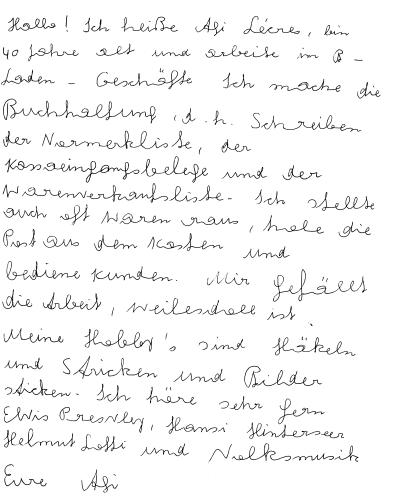 Hallo! Ich heiße Agi Lécres, bin
40 Jahre alt und arbeite im B -
Laden - Geschäfte Ich mache die
Buchhaltung, d. h. Schreiben
der Normerkliste, der
Kassaeingangsbelege und der
Warenverkaufsliste. Ich stelle
auch oft Waren raus, hole die
Post aus dem Kasten und
bediene Kunden. Mir gefällt
die Arbeit, weil es doll ist.
Meine Hobby's sind Häkeln
und Stricken und Bilder
sticken. Ich höre sehr gern
Elvis Presley, Hansi Hinterseer
Helmut Lotti und Volksmusik
Eure Agi